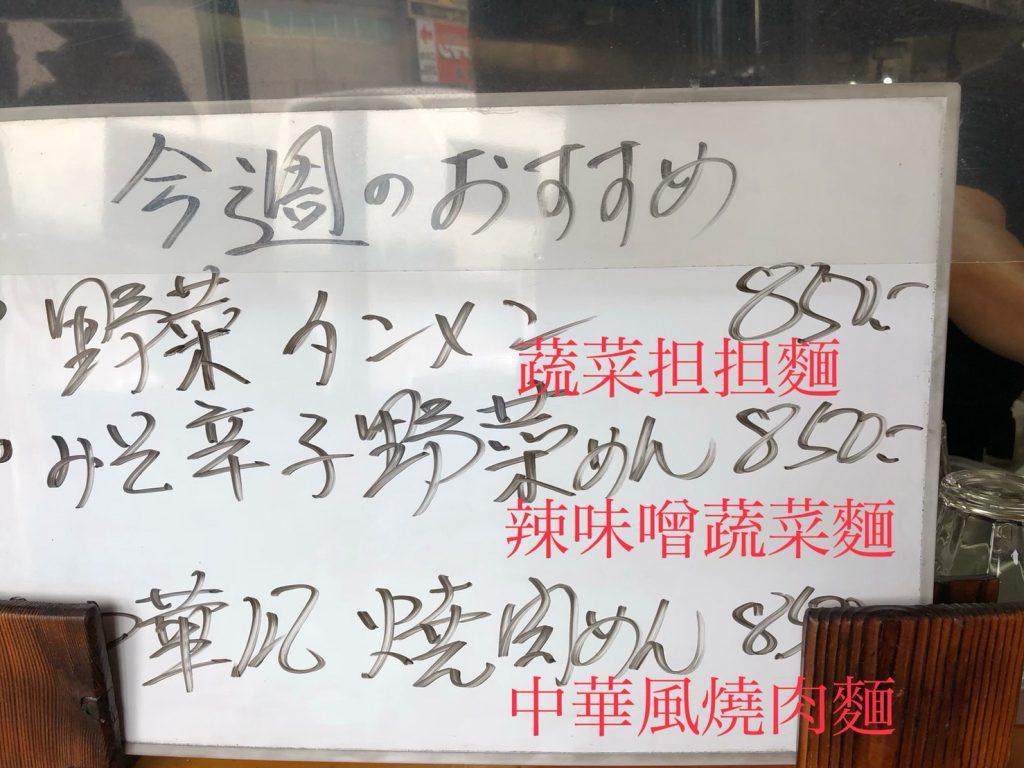 今週のおすすめ
野菜タンメン 850-
蔬菜担担麵
みそ辛子野菜めん 850-
辣味噌蔬菜麵
華風 焼肉めん 850
中華風燒肉麵